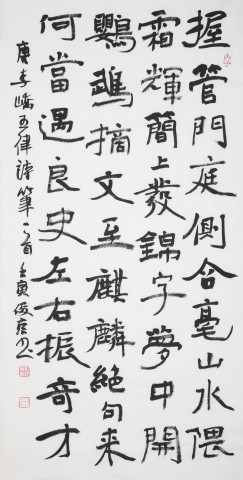 握管門庭側含毫山水隈
霜輝簡上發錦字夢中開
鸚鵡摛文至麒麟絕句来
何當遇良史左右振奇才
唐李嶠五律詩筆一首壬寅